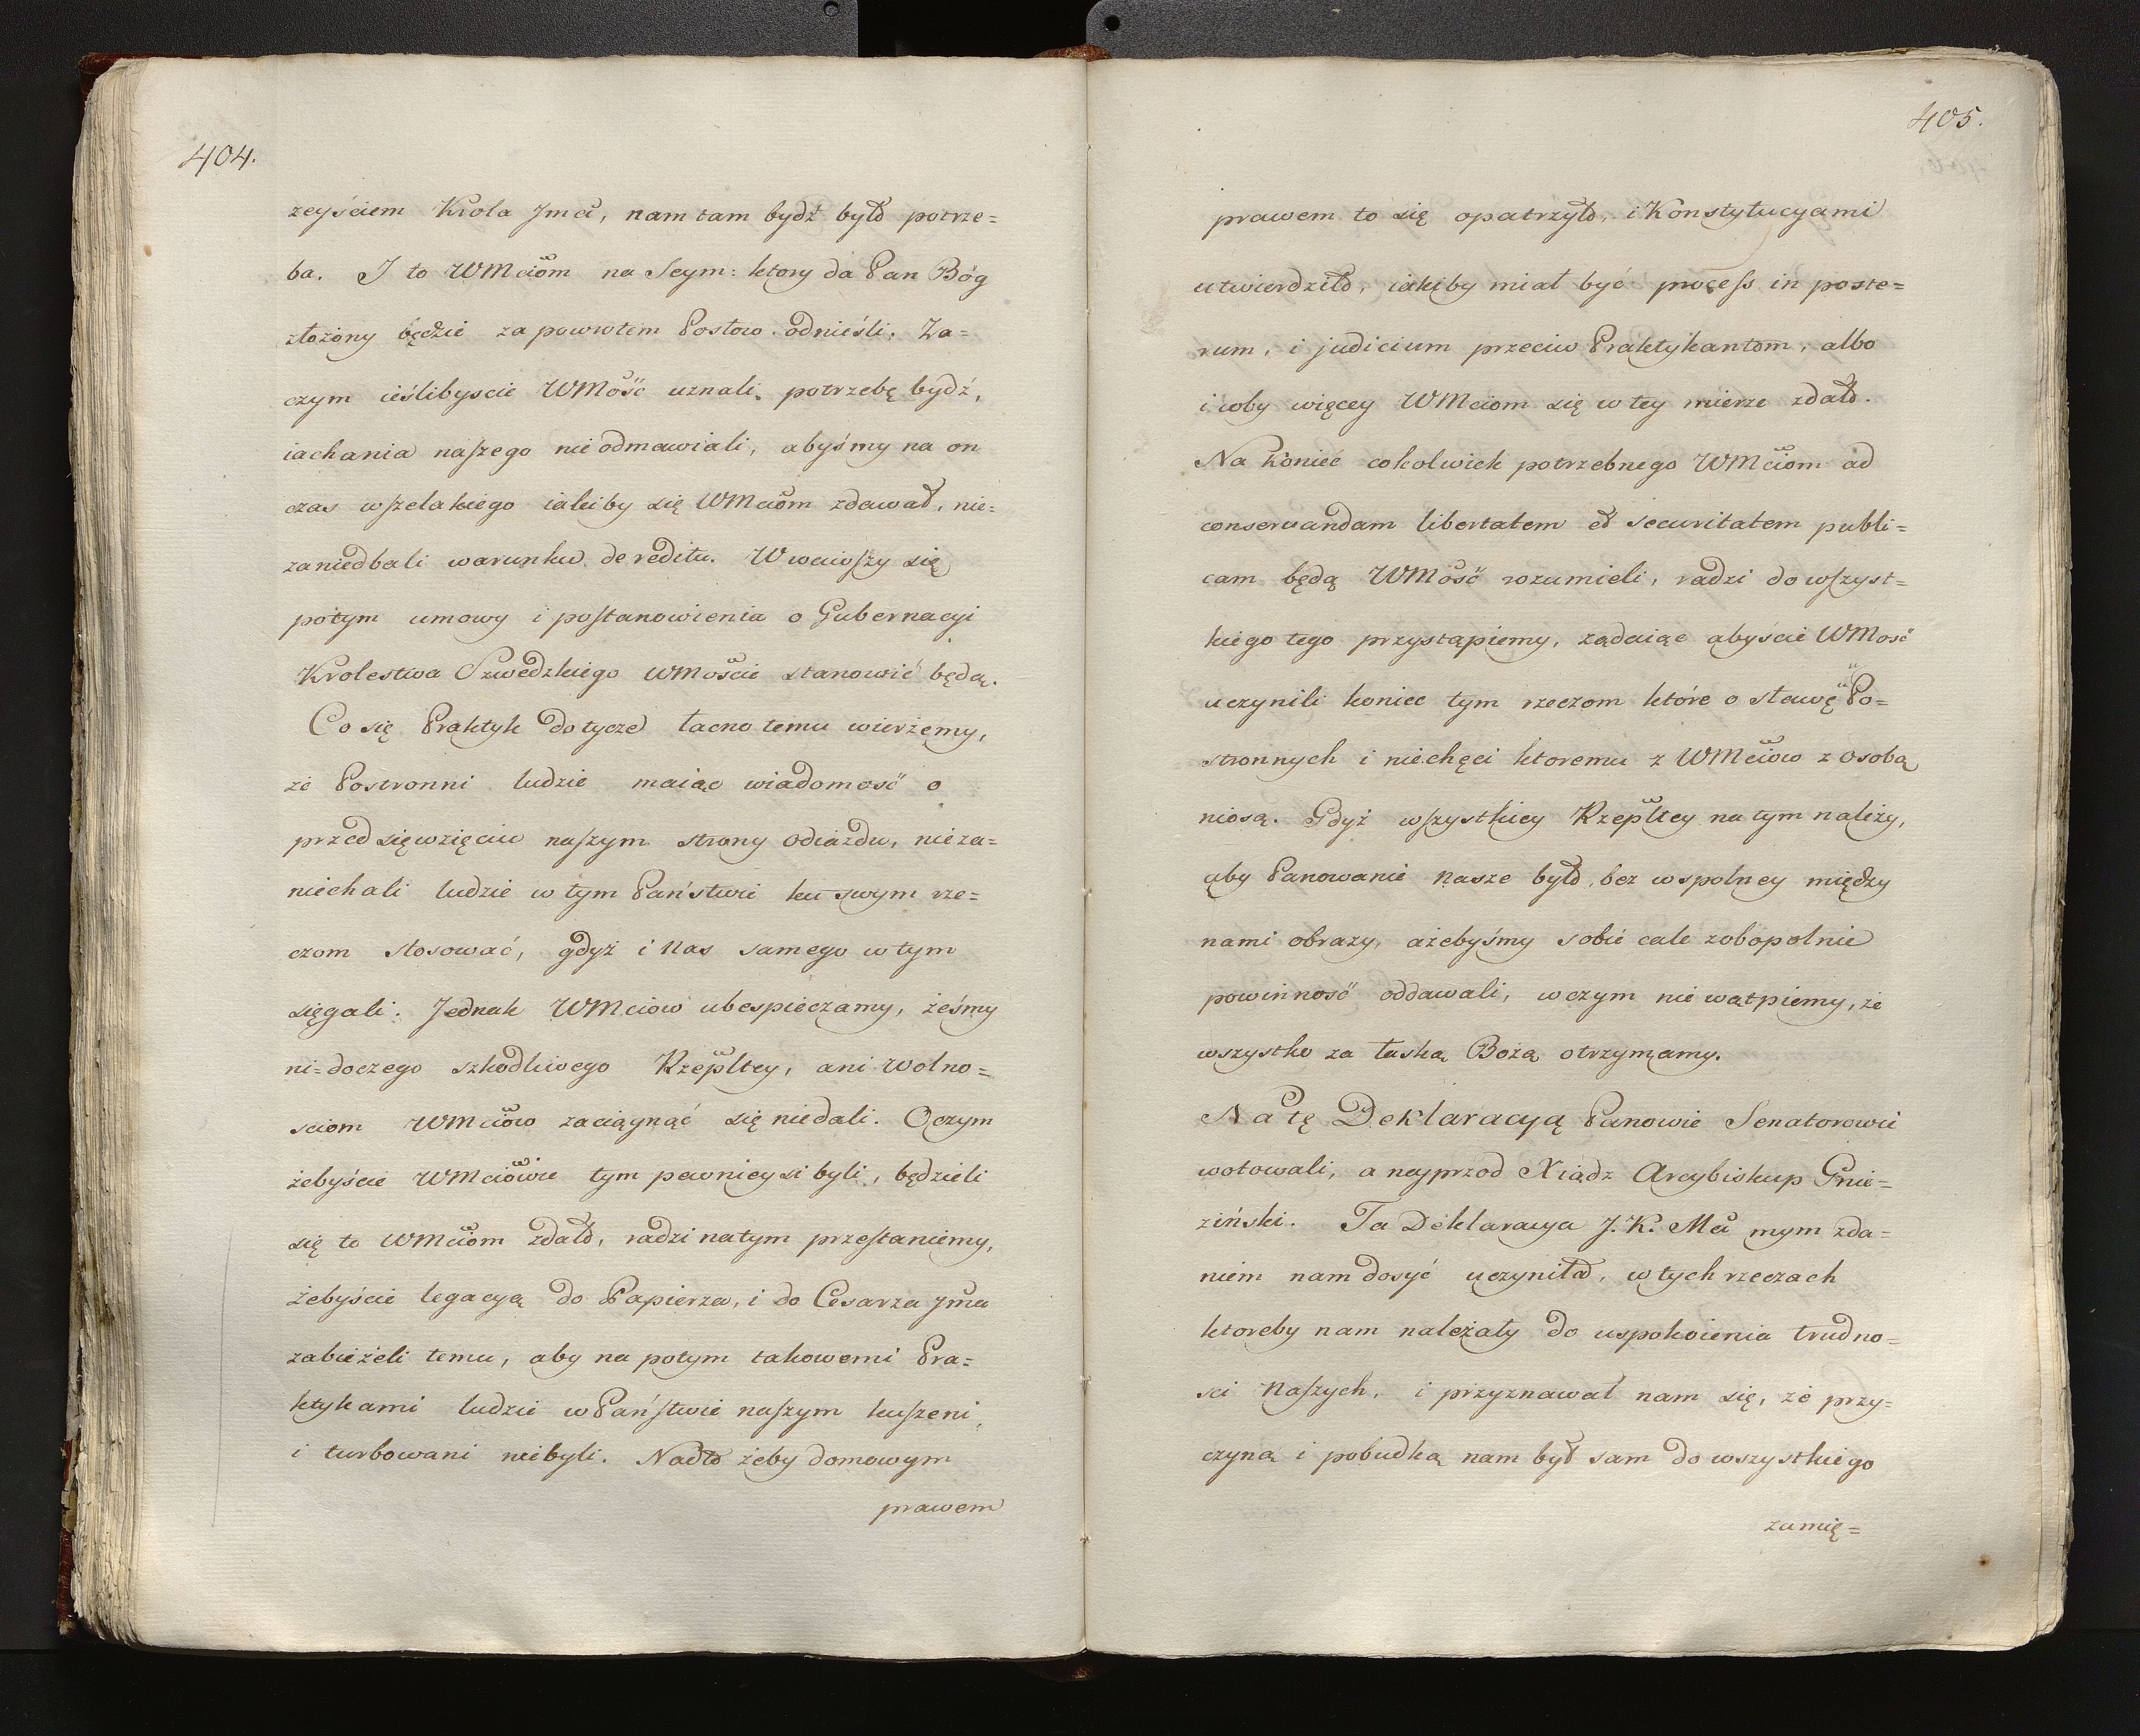 404.
zeyściem Krola Jmci, nam tam bydź było potrze=
ba. I to WMciom na Seym: ktory da Pan Bóg
złożony będzie za powrotem Posłow odnieśli. Za=
czym ieślibyscie WMość uznali potrzebę bydź,
iachania naszego nie odmawiali, abyśmy na on
czas wszelakiego iakiby się WMciom zdawał, nie=
zaniedbali warunku de reditu. Wwaiwszy się
potym umowy i postanowienia o Gubernacyi
Krolestwa Szwedzkiego WMoście stanowić będą.
Co się Praktyk dotycze łacno temu wierzemy,
że Postronni ludzie maiąc wiadomość o
przedsięwzięciu naszym strony odiazdu, nieza=
niechali ludzie w tym Państwie ku swym rze=
czom stosować, gdyż i nas samego w tym
sięgali. Jednak WMciow ubespieczamy, żeśmy
ni=doczego szkodliwego Rzepltey, ani wolno=
sciom WMciow zaciągnąć się niedali. O czym
żebyście WMciowie tym pewnieysi byli, będzieli
się to WMciom zdało, radzi natym przestaniemy,
żebyście legacyą do Papierza, i do Cesarza Jma
zabieżeli temu, aby na potym takowemi Pra=
ktykami ludzie w Państwie naszym kuszeni
i turbowani niebyli. Nadto żeby domowym
prawem
405.
prawem to się opatrzyło, i Konstytucyami
utwierdziło, iakiby miał być process in poste=
rum, i judicium przeciw Praktykantom, albo
i coby więcey WMciom się w tey mierze zdało.
Na koniec cokolwiek potrzebnego WMciom ad
conservandam libertatem et securitatem publi=
cam będą WMość rozumieli, radzi do wszyst=
kiego tego przystąpiemy, żądaiąc abyście WMość
uczynili koniec tym rzeczom które o sławę Po=
stronnych i niechęci ktoremu z WMciow z osobą
niosą. Gdyż wszystkiey Rzepltey na tym należy,
aby Panowanie nasze było, bez wspolney między
nami obrazy, ażebyśmy sobie cale zobopolnie
powinność oddawali, w czym nie wątpiemy, że
wszystko za łaską Bożą otrzymamy.
Na tę Deklaracyą Panowie Senatorowie
wotowali, a nayprzod Xiądz Arcybiskup Gnie=
ziński. Ta Deklaracya J. K. Mci mym zda=
niem nam dosyć uczyniła, w tych rzeczach
ktoreby nam należały do uspokoienia trudno=
sci naszych, i przyznawał nam się, że przy=
czyną i pobudką nam był sam do wszystkiego
zamię=